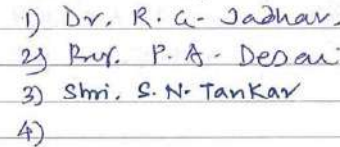 1) Dr. R. G. Jadhav.
2) Prof. P. A. Desai
3) Shri. S. N. Tankar
4)